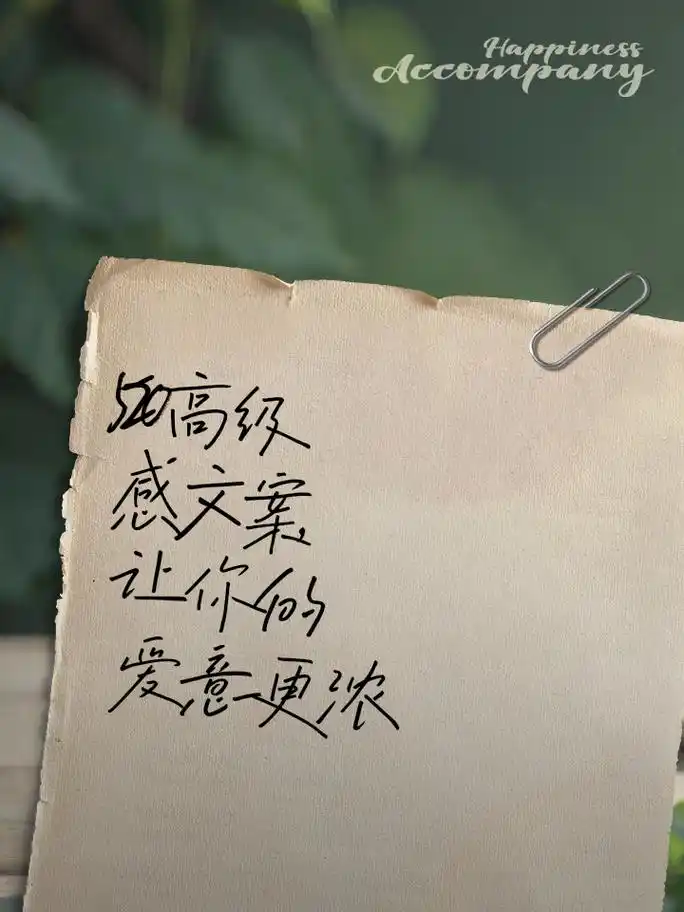 Happiness
Accompany
520高级
感文案
让你的
爱意更浓